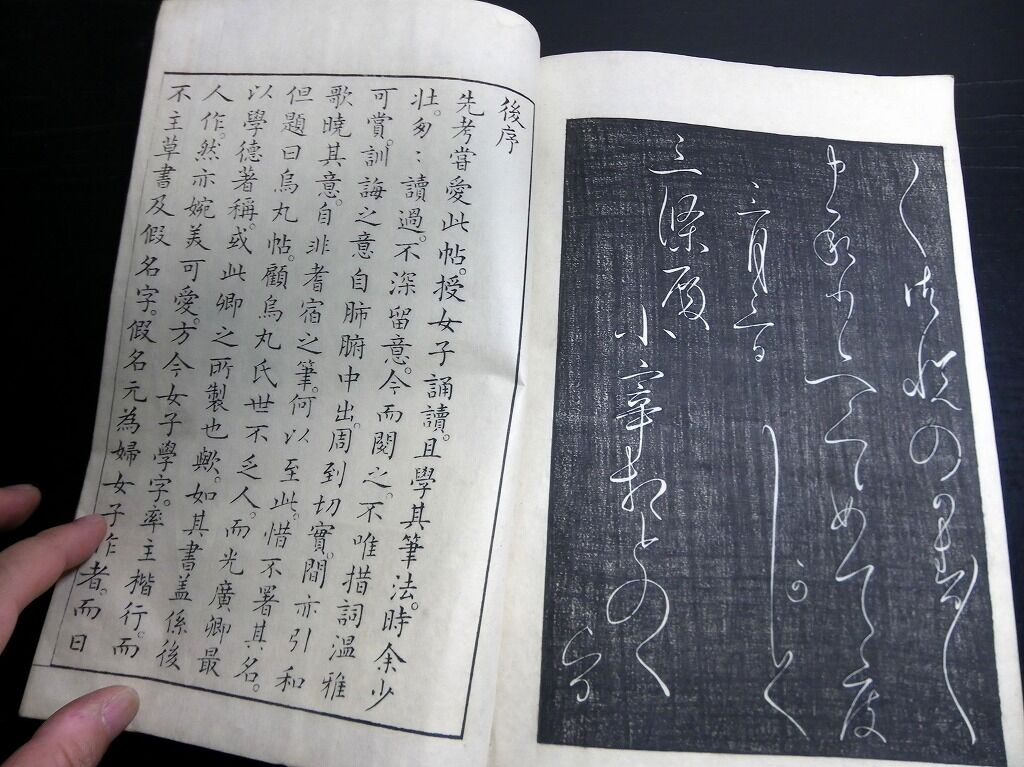 三月三日
三條殿
小宰相との
後序
先考嘗愛此帖。授女子誦讀。且學其筆法。時余少
壮。匆〻讀過。不深留意。今而閲之。不唯措詞温雅
可賞。訓誨之意自肺腑中出。周到切實。間亦引和
歌曉其意。自非耆宿之筆。何以至此。惜不署其名。
但題曰烏丸帖。顧烏丸氏世不乏人。而光廣卿最
以學德著稱。或此卿之所製也歟。如其書盖係後
人作。然亦婉美可愛。方今女子學字。率主楷行。而
不主草書及假名字。假名元為婦女子作者。而曰